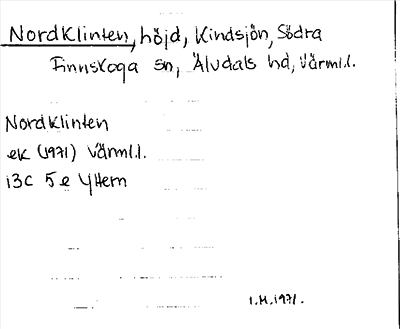 Nordklinten, höjd, Kindsjön, Södra
Finnskoga sn, Älvdals hd, Värml.l.
Nordklinten
ek (1971) Värml.l.
13C 5e Yttern
I.H.1971.